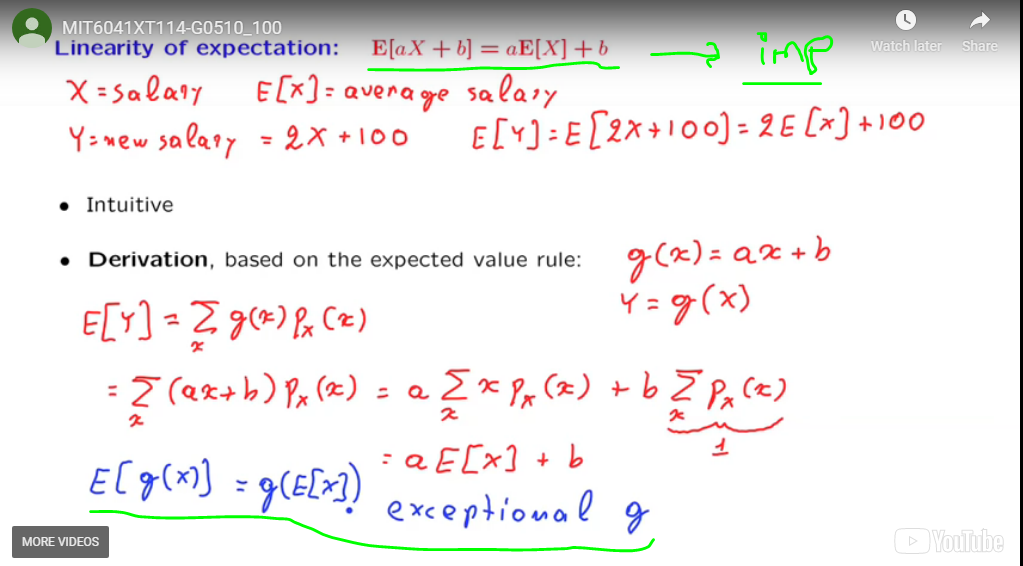 MIT6041XT114-G0510_100
Watch later Share
Linearity of expectation: E[aX + b] = aE[X] + b → imp
X = salary E[X] = average salary
Y = new salary = 2X + 100 E[Y] = E[2X + 100] = 2E[X] + 100
• Intuitive
• Derivation, based on the expected value rule: g(x) = ax + b
Y = g(X)
E[Y] = Σₓ g(x) pₓ(x)
= Σₓ (ax+b) pₓ(x) = a Σₓ x pₓ(x) + b Σₓ pₓ(x)
1
= a E[X] + b
E[g(X)] = g(E[X]) exceptional g
MORE VIDEOS
YouTube